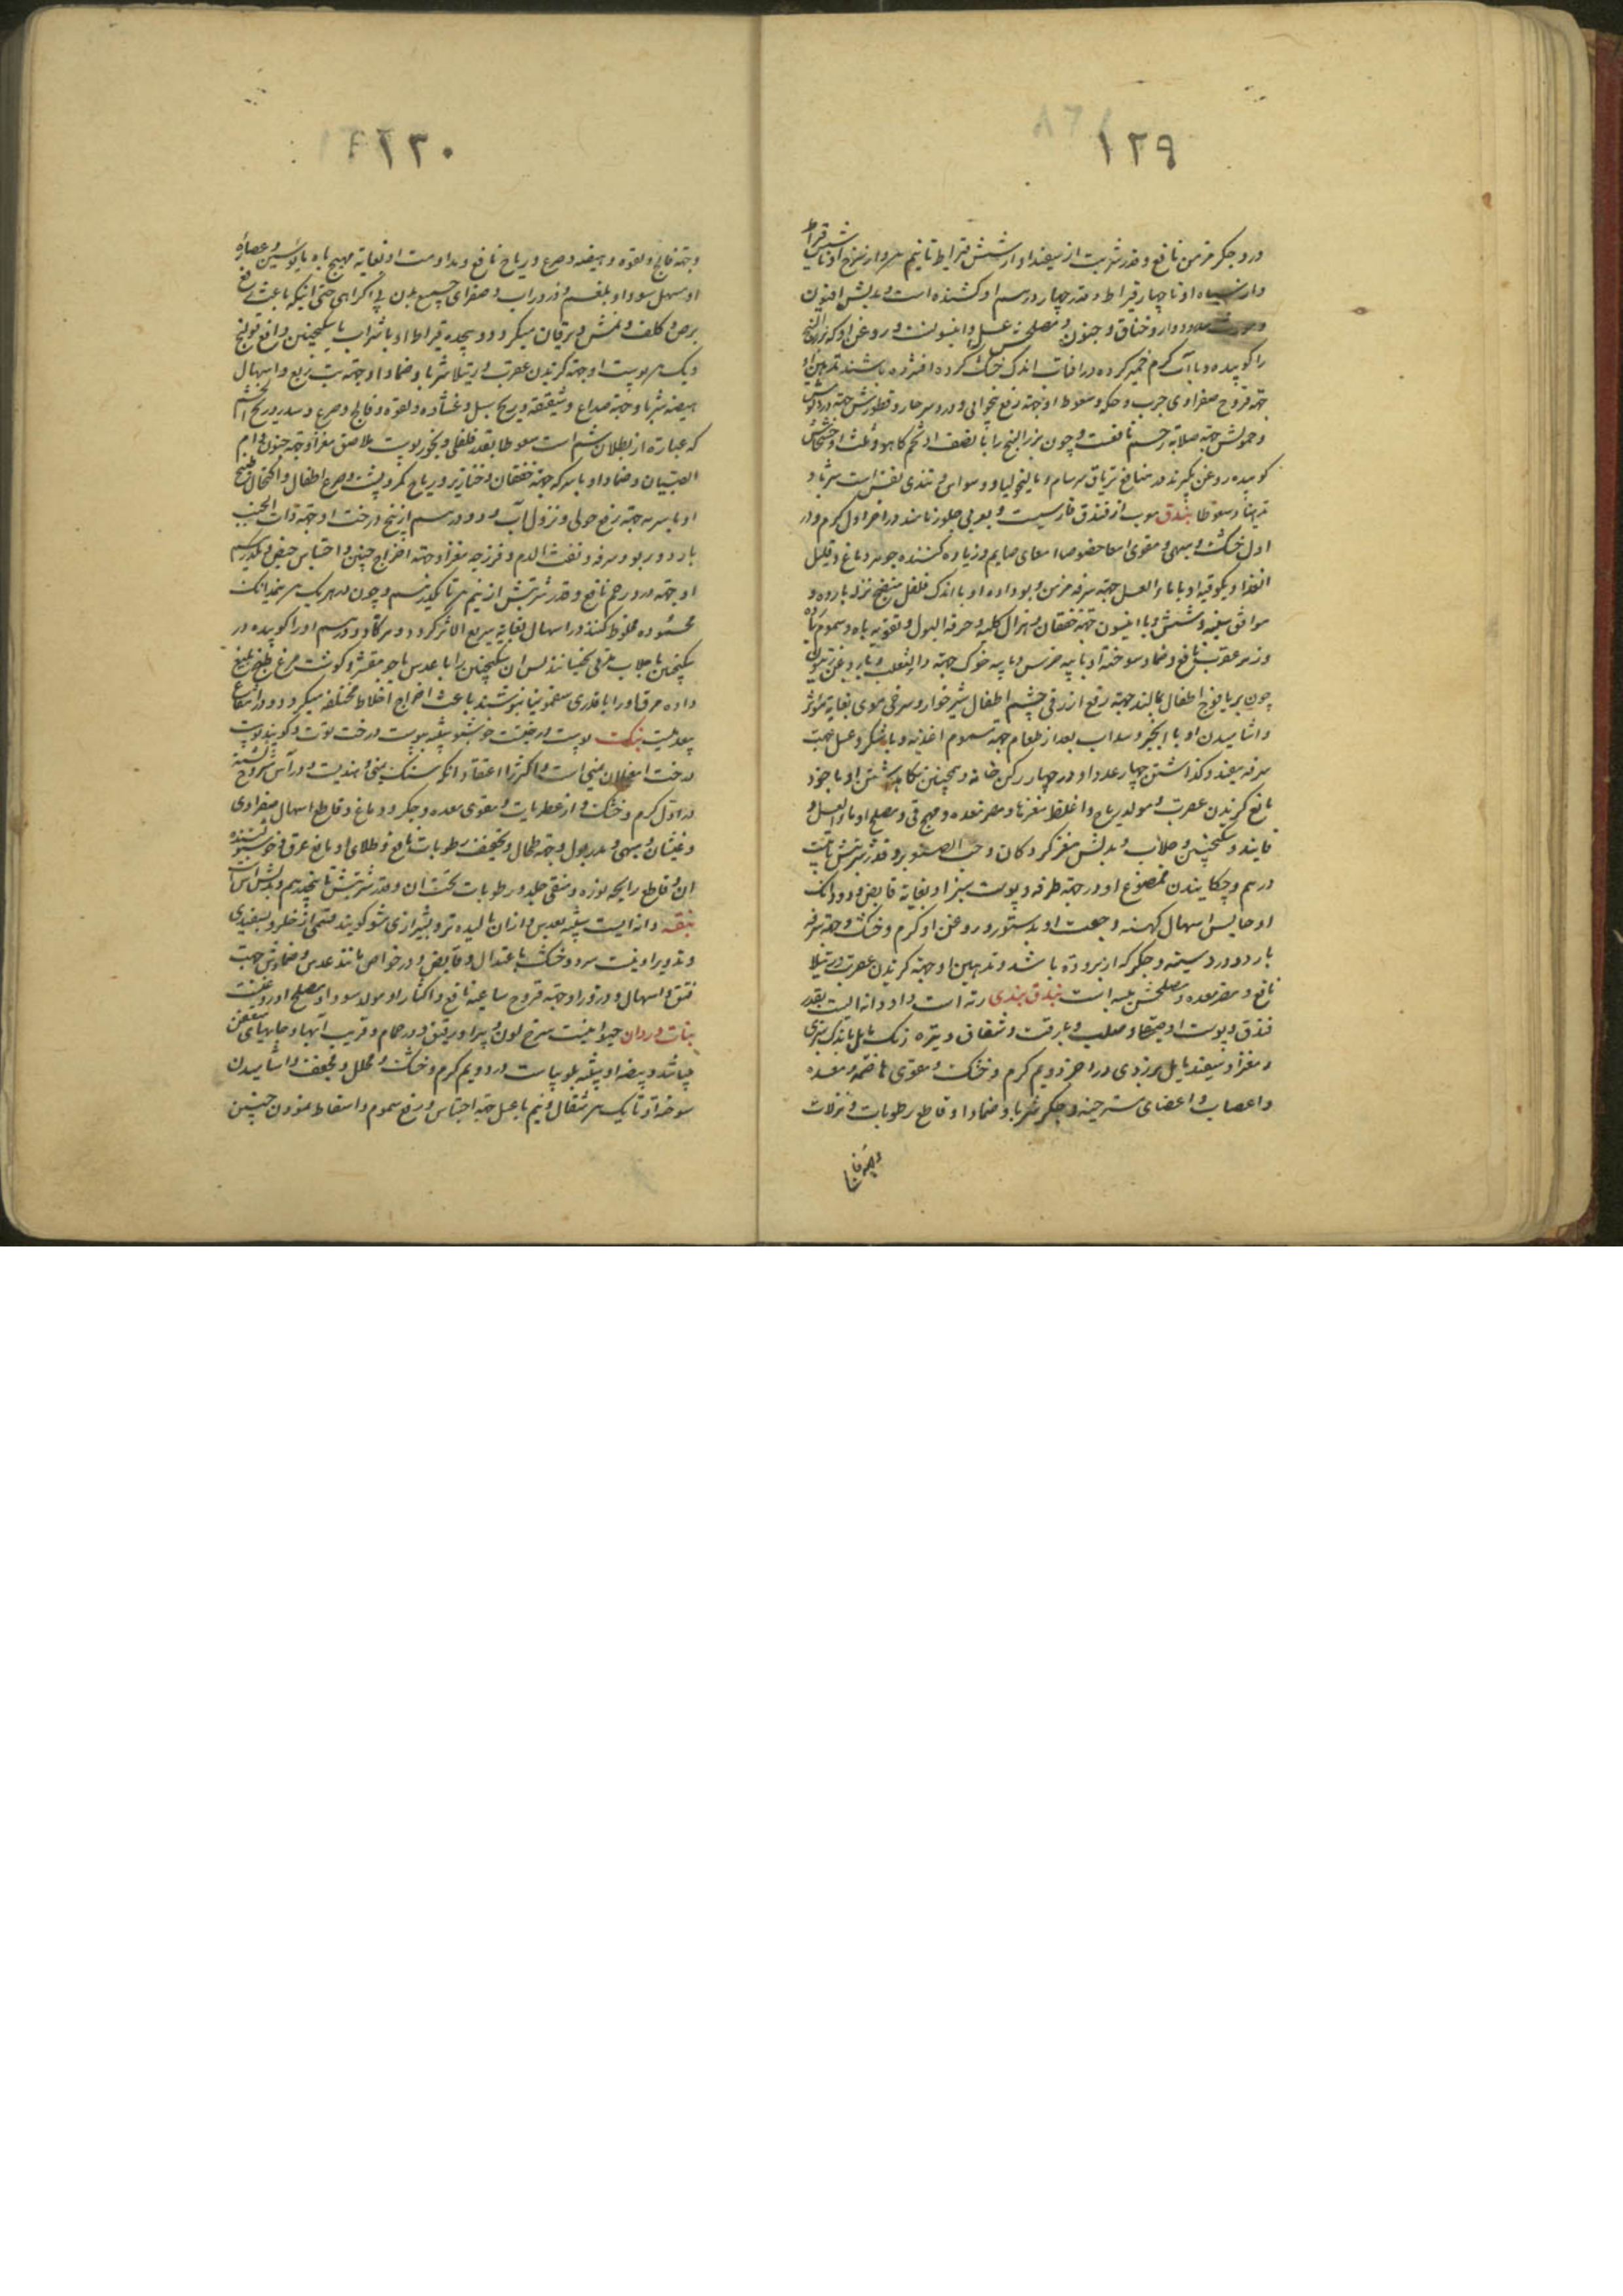 ۱۲۹
درد جگر مزمن نافع و قدر شربت از سفید او از شش قیراط تا نیم درم و از سرخ او تا شش قیراط
و از سیاه او تا چهار قیراط و قدر چهار درم او کشنده است و بدلش افیون
دوار و خناق و جنون و مصلحش عسل و انیسونست و روغن او که بزرالبنج
را کوبیده و با آب گرم خمیر کرده در افتاب اندک خشک کرده افشرده باشند تدهین او
جهة قروح صفراوی و جرب و حکه و سعوط او جهة رفع بیخوابی و درد سر حار و قطورش جهة درد گوش
و حمولش جهة صلابة رحم نافعست و چون بزرالبنج را با نصف او تخم کاهو و ثلث او خشخاش
کوبیده روغن بگیرند در منافع تریاق سرسام و مالیخولیا و وسواس و تندی نفس است شربا و
تدهینا و سعوطا بندق معرب از فندق فارسیست و بعربی جلوز نامند در اخر اول گرم و در
اول خشک و مبهی و مقوی امعا خصوصا امعای صایم و زیاده کننده جوهر دماغ و قلیل
الغذا و یکوقیه او با ماء العسل جهة سرفه مزمن و بوداده او با اندک فلفل منضج نزله بارده و
موافق سینه و شش و با انیسون جهة خفقان و هزال کلیه و حرقة البول و تقویه باه و سموم بارده
و زهر عقرب نافع و ضماد سوخته او با پیه خرس و پیه خوک جهة داءالثعلب و با روغن زیتون
چون بر یافوخ اطفال بمالند جهة رفع ازرقی چشم اطفال شیرخوار و سرخی موی بغایة مؤثر
و اشامیدن او با انجیر و سداب بعد از طعام جهة سموم اغذیه و با شکر و عسل جهت
سرفه مفید و گذاشتن چهار عدد او در چهار رکن خانه و همچنین نگاه داشتن او با خود
مانع گزیدن عقرب و مولد ریاح و اغلظ مغزها و مضر معده و مهیج قی و مصلح او ماء العسل و
فانید و سکنجبین و جلاب و بدلش مغز گردکان و حب الصنوبر و قدر شربتش تا بیست
درهم و چکانیدن ممضوغ او در جهة طرفه و پوست سبز او بغایة قابض و دو دانک
او حابس اسهال کهنه و جفت او بدستور و روغن او گرم و خشک و جهة سرفه
بارد و درد سینه و جگر که از برودة باشد و تدهین او جهة گزیدن عقرب و رتیلا
نافع و مضر معده و مصلحش بسه است بندق هندی رته است و او دانه ایست بقدر
فندق و پوست او صیقل و صلب و با رقت و شفاف و تیره رنگ مایل باندک سبزی
و مغز او سفید مایل بزردی در اخر دویم گرم و خشک و مقوی هاضمه و معده
و اعصاب و اعضای مسترخیه و جگر شربا و ضمادا و قاطع رطوبات و نزلات
و جهة فالج
۱۳۰
و جهة فالج و لقوه و هیضه و صرع و ریاح نافع و مداومت او بغایة مهیج باه
او مسهل سودا و بلغم و زرداب و صفرای جمیع بدن بی اکراهی حتی اینکه باعث رفع
برص و کلف و نمش و یرقان میگردد و هیجده قیراط او با شراب یا سکنجبین رافع قولنج
و یک درم پوست او جهة گزیدن عقرب و رتیلا شربا و ضمادا و جهة تب ربع و اسهال
هیضه شربا و جهة صداع و شقیقه و ریح سبل و غشاوه و لقوه و فالج و صرع و سدر و ریح الشم
که عبارة از بطلان شم است سعوطا بقدر فلفلی و بخور پوست ملاصق مغز او جهة جنون و ام
الصبیان و ضماد او با سرکه جهة خفقان و خنازیر و ریاح کمر و پشت و صرع اطفال و اکتحال
او با سرمه جهة رفع حولی و نزول آب و دو درم از بیخ درخت او جهة ذات الجنب
بارد و ربو و سرفه و نفث الدم و فرزجه مغز او جهة اخراج جنین و احتباس حیض و یکدرم
او جهة درد رحم نافع و قدر شربتش از نیم درم تا یکدرم و چون در هر یک درم نیمدانک
محموده مخلوط کنند در اسهال بغایة سریع الاثر گردد و هرگاه دو درم او را کوبیده در
سکنجبین یا جلاب مغلی بخیسانند پس ان سکنجبین را با عدس یا جو مقشر و گوشت مرغ طبخ بلیغ
داده مرق او را با قدری سقمونیا بنوشند باعث اخراج اخلاط مختلفه میگردد و در انتفاع
بیعدیلست بنک پوست درختیست خوشبو شبیه بپوست درخت توت و گویند پوست
درخت امغیلان یمنی است و اکثر را اعتقاد انکه سنک یمنی و هندیست و در آس مشروح گشته
در اول گرم و خشک و از عطریات و مقوی معده و جگر و دماغ و قاطع اسهال صفراوی
و غثیان و مبهی و مدر بول و جهة طحال و تجفیف رطوبات نافع و طلای او مانع عرق و خوشبو کننده
ان و قاطع رایحه نوره و منقی جلد و رطوبات تحت ان و قدر شربتش تا پنجدرهم و بدلش آس است
بنقه دانه ایست شبیه بعدس و ازان بالیده تر و بشیرازی شو گویند قسمی از خلر و بسفیدی
و تدویر او نیست سرد و خشک با عتدال و قابض و در خواص مانند عدس و ضمادش جهت
فتق و اسهال و ذرور او جهة قروح ساعیه نافع و اکثار او مولد سودا و مصلح او روغنست
بنات وردان حیوانیست سرخ لون و پردار و رقیق و در حمام و قریب آبها و جایهای متعفن
میباشد و بیضه او شبیه بلوبیاست در دویم گرم و خشک و محلل و مجفف و اشامیدن
سوخته او تا یک درم مثقال و نیم با عسل جهة احتباس و رفع سموم و اسقاط نمودن جنین